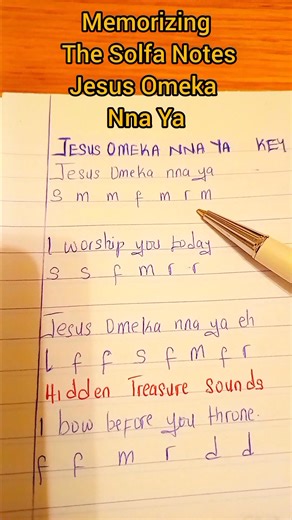 Memorizing
The Solfa Notes
Jesus Omeka
Nna Ya
JESUS OMEKA NNA YA KEY
Jesus Omeka nna ya
S m m f m r m
I worship you today
s s f m r r
Jesus Omeka nna ya eh
l f f s f m f r
Hidden Treasure Sounds
I bow before you throne.
f f m r d d